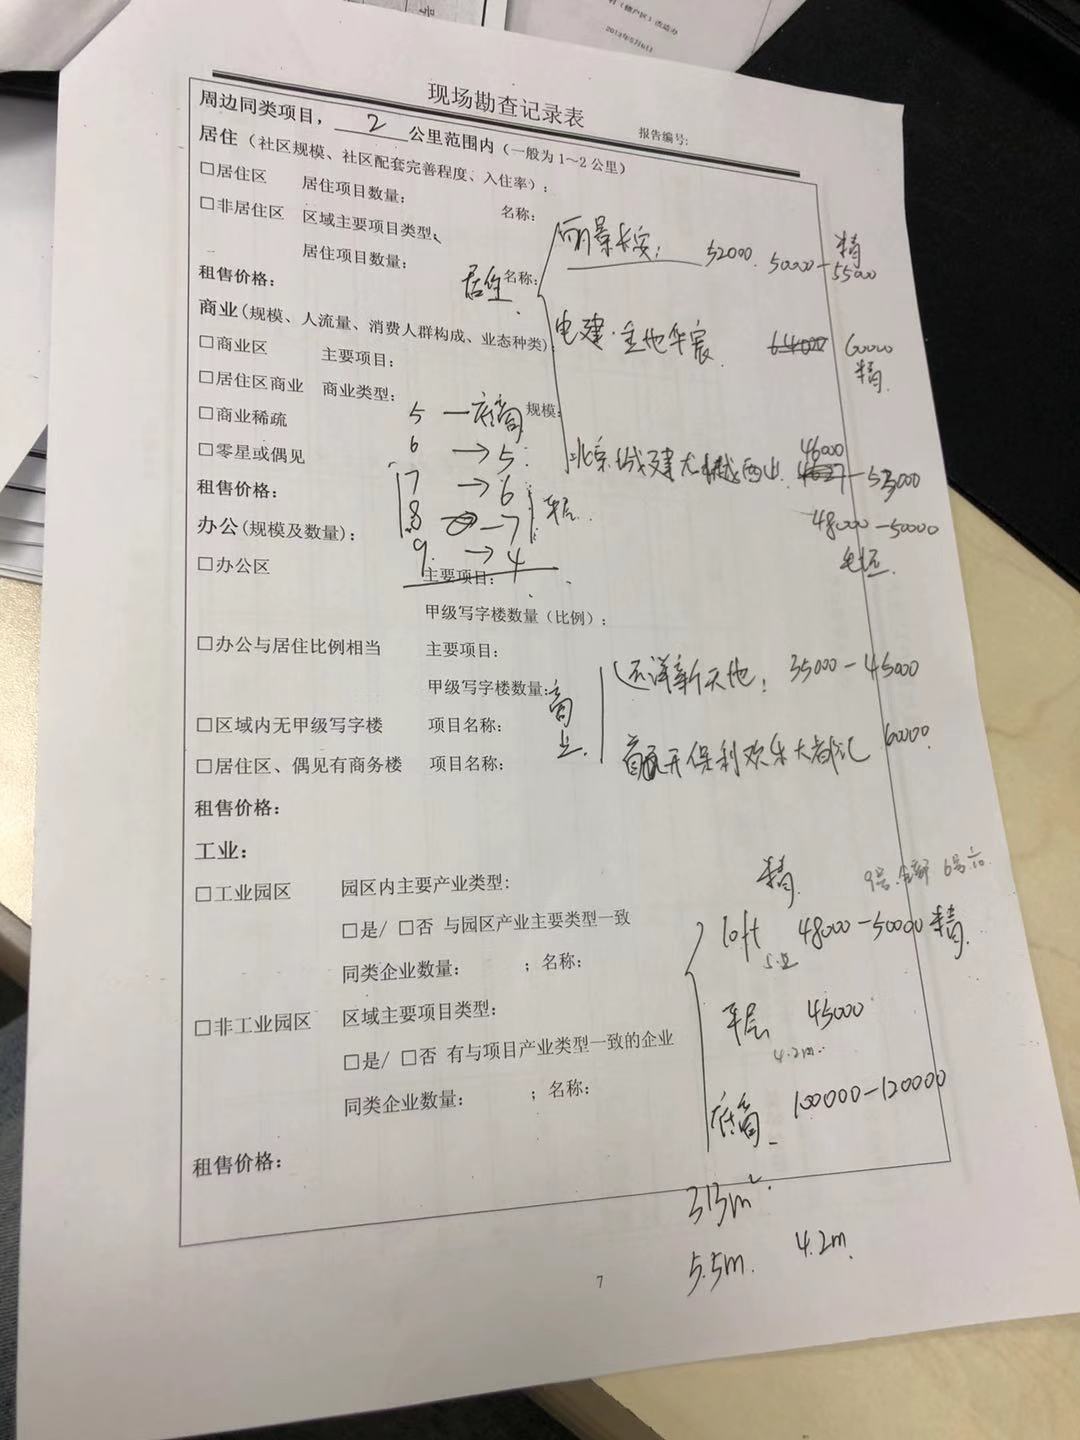 2013年5月6日
现场勘查记录表
报告编号:
周边同类项目， 2 公里范围内（一般为1～2公里）
居住（社区规模、社区配套完善程度、入住率）：
□居住区 居住项目数量： 名称：
□非居住区 区域主要项目类型：
居住项目数量： 名称：
租售价格：
居住
丽景长安： 52000. 50000-55000 精
商业(规模、人流量、消费人群构成、业态种类)
电建·金地华宸 64000 60000
精
□商业区 主要项目：
□居住区商业 商业类型： 规模：
5 — 底商
□商业稀疏
6 → 5
北京城建 西山 46000 — 53000
□零星或偶见
7 → 6
租售价格：
8 — 7 平层
48000-50000
毛坯
办公(规模及数量)：
9. → 4
□办公区 主要项目：
甲级写字楼数量（比例）：
□办公与居住比例相当 主要项目：
远洋新天地： 35000-45000
甲级写字楼数量：
商业
□区域内无甲级写字楼 项目名称：
首开保利欢乐大都汇 60000
□居住区、偶见有商务楼 项目名称：
租售价格：
工业：
精
9号 6号
□工业园区 园区内主要产业类型:
□是/ □否 与园区产业主要类型一致
loft 48000-50000 精
同类企业数量： ；名称：
□非工业园区 区域主要项目类型：
平层 45000
4.2m
□是/ □否 有与项目产业类型一致的企业
同类企业数量： ；名称：
底商 100000-120000
租售价格：
313m².
5.5m. 4.2m.
7